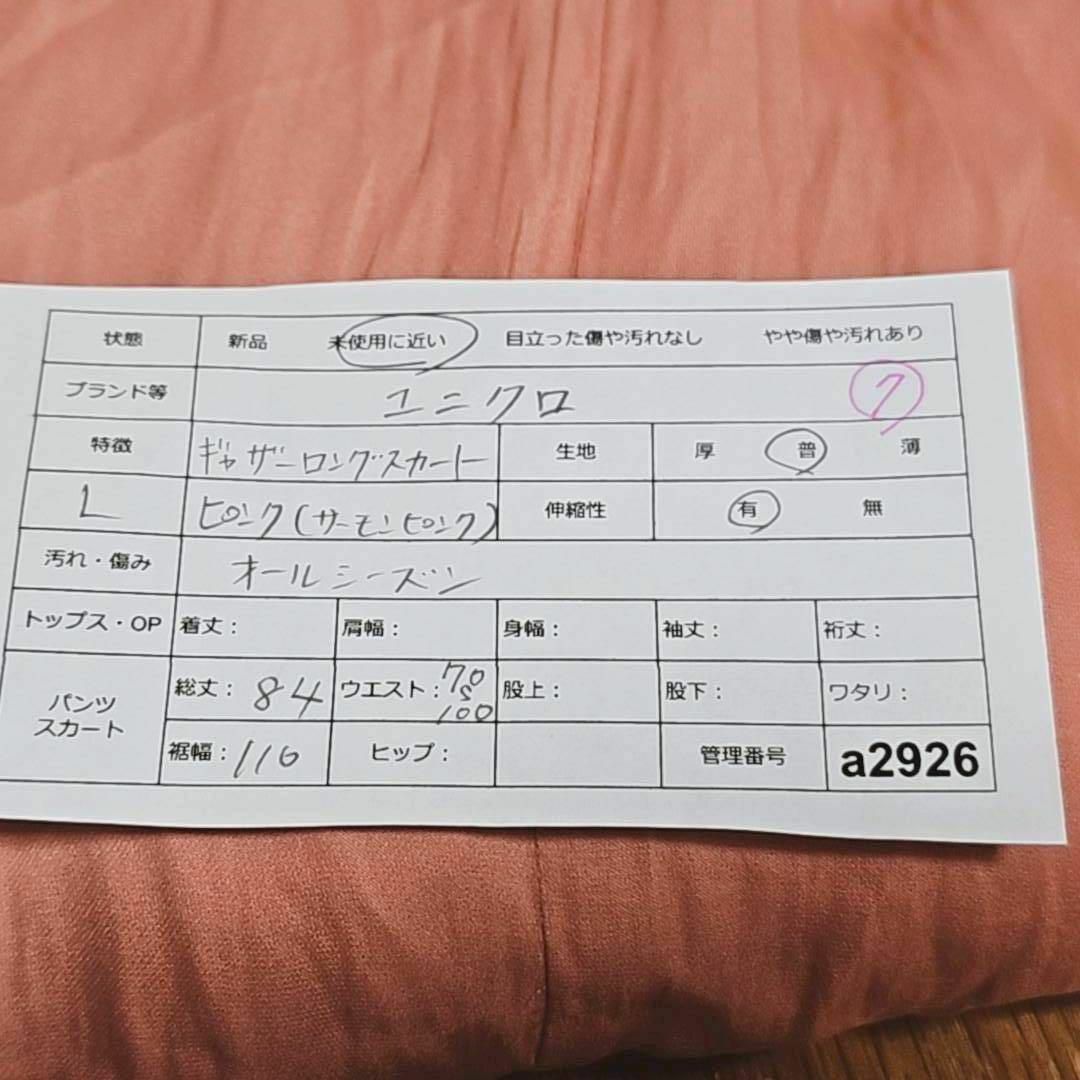 状態 新品 未使用に近い 目立った傷や汚れなし やや傷や汚れあり
ブランド等 ユニクロ 7
特徴 ギャザーロングスカート 生地 厚 普 薄
L ピンク(サーモンピンク) 伸縮性 有 無
汚れ・傷み オールシーズン
トップス・OP 着丈: 肩幅: 身幅: 袖丈: 裄丈:
パンツ スカート 総丈: 84 ウエスト: 70 S 100 股上: 股下: ワタリ:
裾幅: 110 ヒップ: 管理番号 a2926